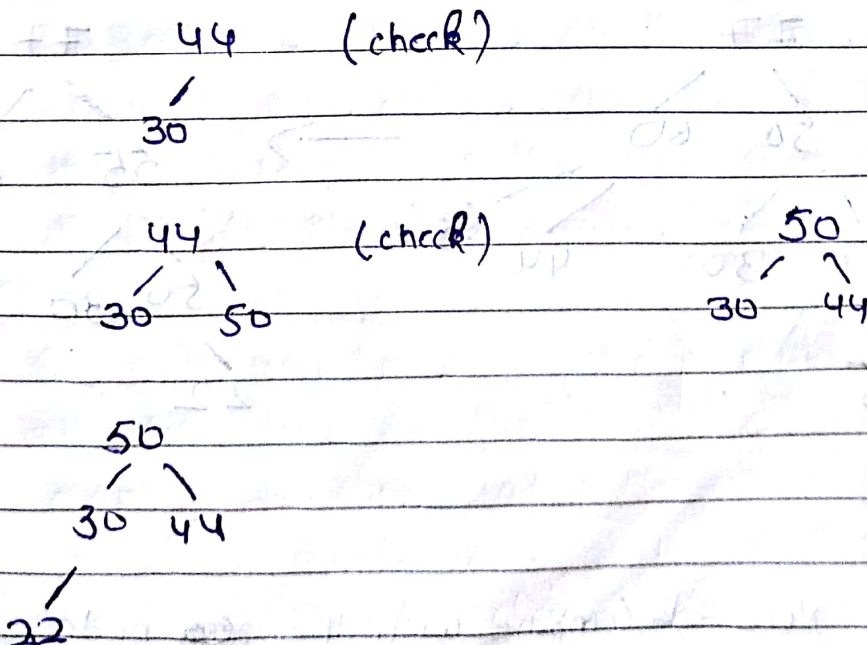 44 (check)
30
44 (check) 50
30 50 30 44
50
30 44
22